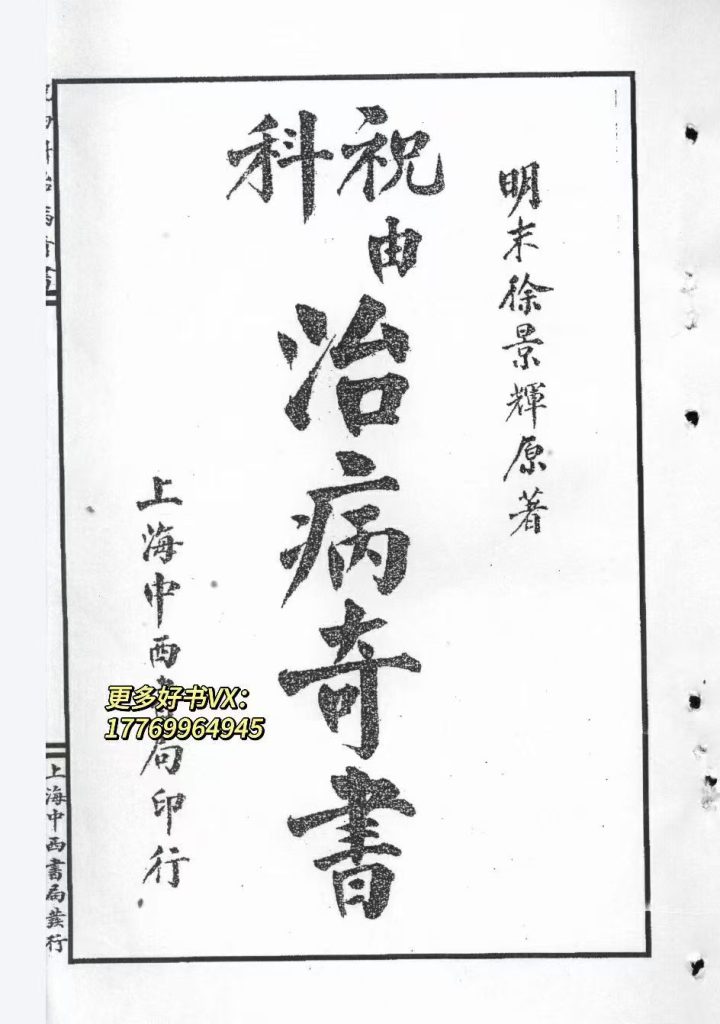 明末徐景輝原著
祝由科
治病奇書
上海中西書局印行
更多好书VX：
17769964945
上海中西書局發行